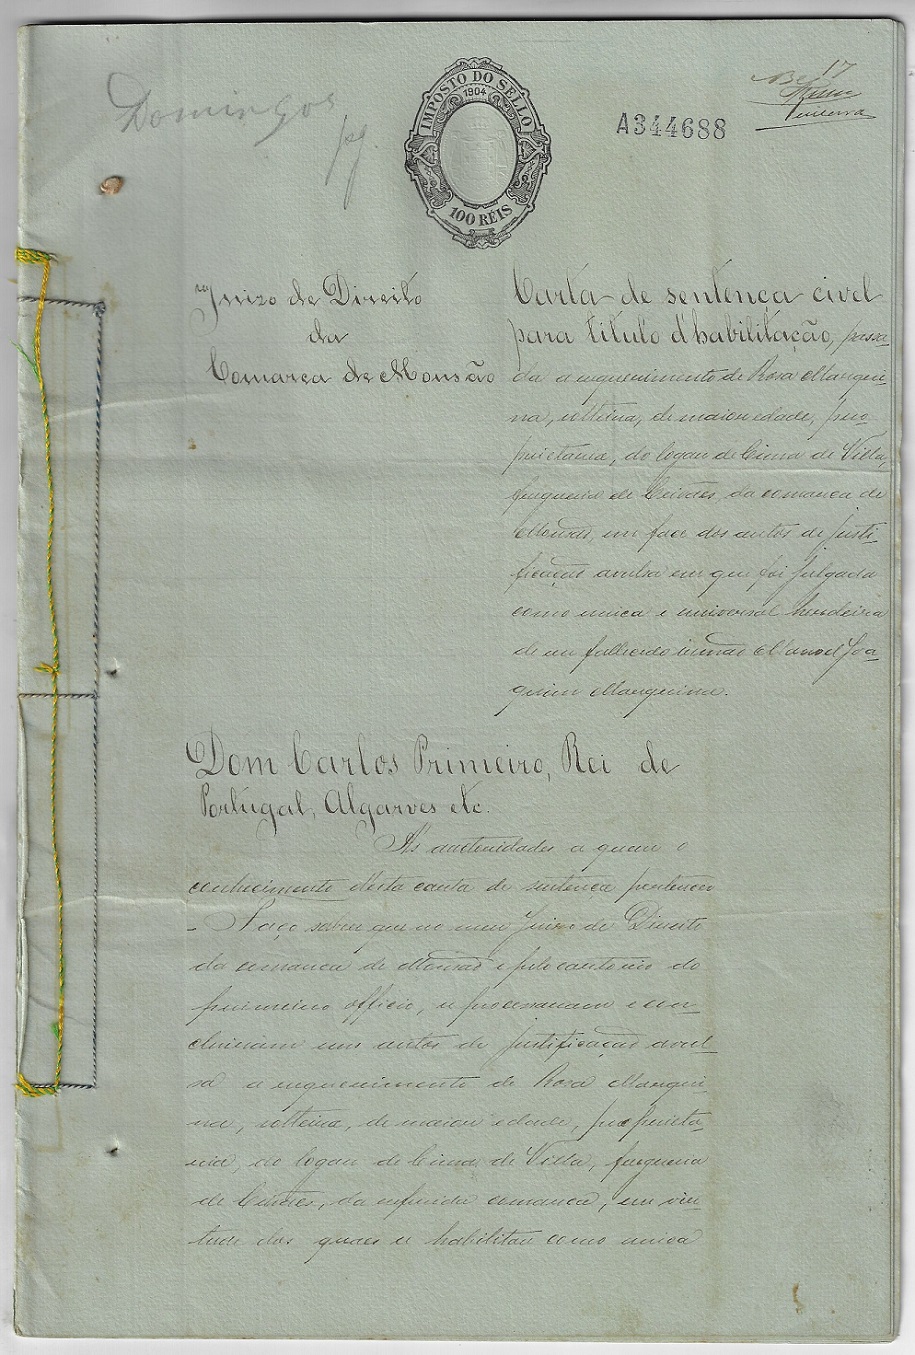 Domingos
IMPOSTO DO SELLO
1904
100 RÉIS
A344688
17
Juizo de Direito
da
Comarca de Monsão
Carta de sentença civel
para titulo d'habilitação, passa-
da a requerimento de Rosa Marque-
na, solteira, de maior edade, pro-
prietaria, do logar de Cima de Villa,
freguesia de Ceivães, da comarca de
Monsão, em face dos autos de justi-
ficação avulsa em que foi julgada
como unica e universal herdeira
de seu fallecido irmão Manoel Joa-
quim
Dom Carlos Primeiro, Rei de
Portugal, Algarves etc.
As auctoridades a quem o
conhecimento desta carta de sentença pertencer
- Faço saber que no meu Juizo de Direito
da comarca de Monsão e pelo cartorio do
primeiro officio, se processaram e con-
cluiram uns autos de justificação avul-
sa a requerimento de Rosa
na, solteira, de maior edade, proprieta-
ria, do logar de Cima de Villa, freguesia
de Ceivães, da referida comarca, em vir-
tude dos quaes se habilitou como unica